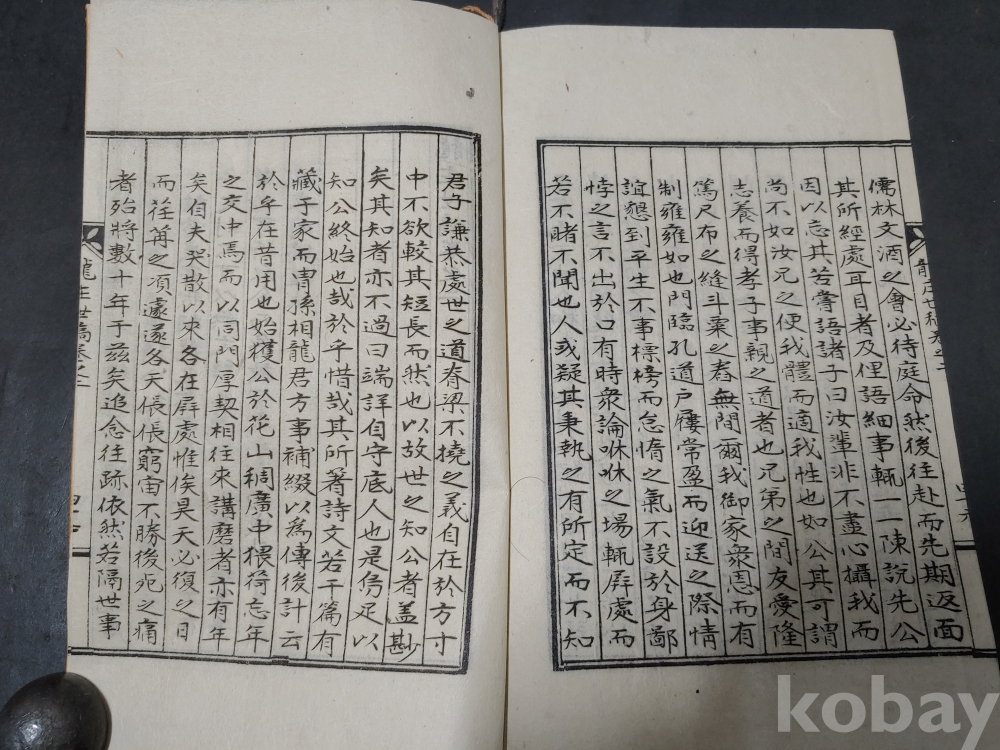 儒林文酒之會必待庭命然後往赴而先期返面
其所經處耳目者及俚語細事輒一一陳說先公
因以忘其苦嘗語諸子曰汝輩非不盡心攝我而
尚不如汝兄之便我體而適我性也如公其可謂
志養而得孝子事親之道者也兄弟之間友愛隆
篤尺布之縫斗粟之舂無間爾我御家衆恩而有
制雍雍如也門臨孔道戶屨常盈而迎送之際情
誼懇到平生不事標榜而怠惰之氣不設於身鄙
悖之言不出於口有時衆論咻咻之場輒屛處而
若不睹不聞也人或疑其秉執之有所定而不知
君子謙恭處世之道脊梁不撓之義自在於方寸
中不欲較其短長而然也以故世之知公者盖尠
矣其知者亦不過曰端詳自守底人也是烏足以
知公終始也哉於乎惜哉其所著詩文若干篇有
藏于家而胄孫相龍君方事補綴以爲傳後計云
於乎在昔用也始獲公於花山稠廣中猥荷忘年
之交中焉而以同門厚契相往來講磨者亦有年
矣自夫哭散以來各在屛處惟俟昊天必復之日
而荏苒之項遽遂各天倀倀窮宙不勝後死之痛
者殆將數十年于玆矣追念往跡依然若隔世事
龍 世稿卷之二
四十
kobay